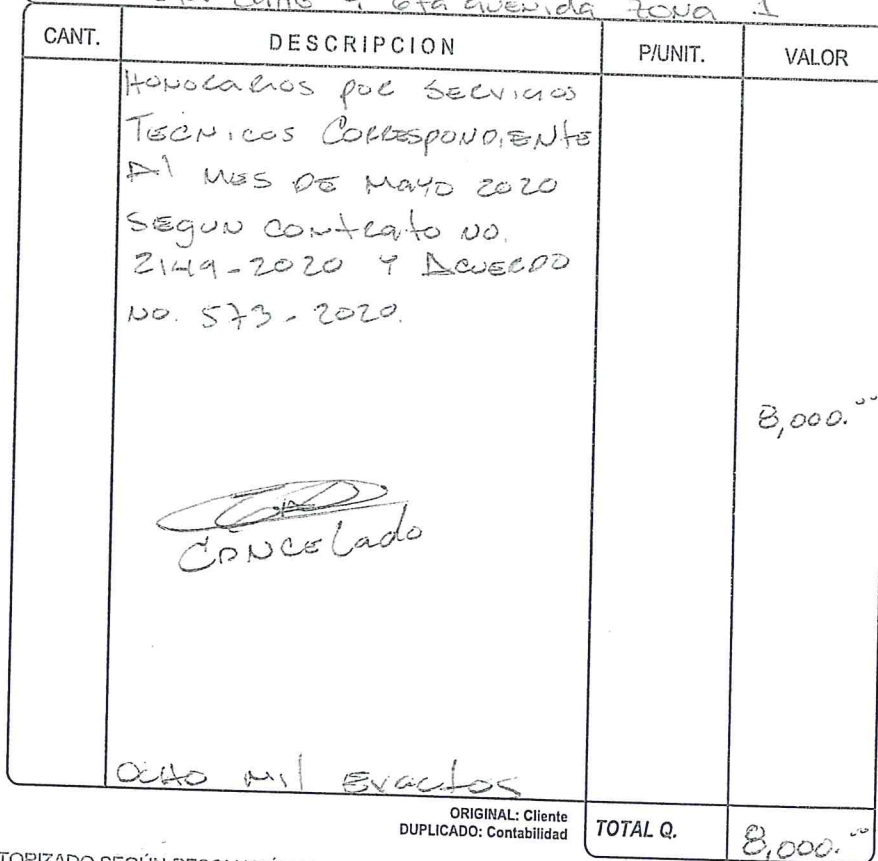 calle y 6ta avenida zona 1
CANT. DESCRIPCION P/UNIT. VALOR
Honorarios por Servicios
Tecnicos Correspondiente
Al mes de Mayo 2020
Segun contrato no.
2149-2020 Y Acuerdo
No. 573-2020.
8,000.00
Cancelado
Ocho mil Exactos
ORIGINAL: Cliente
DUPLICADO: Contabilidad
TOTAL Q. 8,000.00